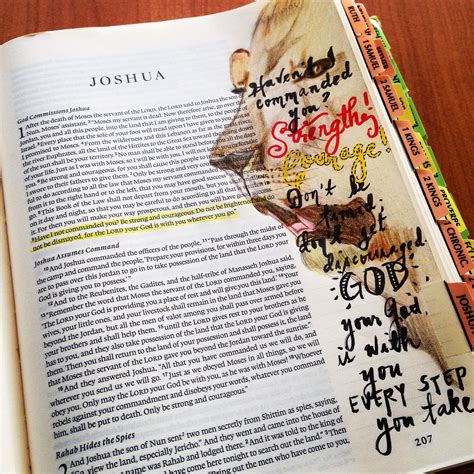 JOSHUA
God Commissions Joshua
1 After the death of Moses the servant of the LORD, the LORD said to Joshua the son of
Nun, Moses' assistant, 2 "Moses my servant is dead. Now therefore arise, go over this
Jordan, you and all this people, into the land that I am giving to them, to the people of
Israel. 3 Every place that the sole of your foot will tread upon I have given to you, just as
I promised to Moses. 4 From the wilderness and this Lebanon as far as the great river, the
river Euphrates, all the land of the Hittites to the Great Sea toward the going down of
the sun shall be your territory. 5 No man shall be able to stand before you all the days
of your life. Just as I was with Moses, so I will be with you. I will not leave you or forsake
you. 6 Be strong and courageous, for you shall cause this people to inherit the land that
I swore to their fathers to give them. 7 Only be strong and very courageous, being careful
to do according to all the law that Moses my servant commanded you. Do not turn
from it to the right hand or to the left, that you may have good success wherever you
go. 8 This Book of the Law shall not depart from your mouth, but you shall meditate
on it day and night, so that you may be careful to do according to all that is written in
it. For then you will make your way prosperous, and then you will have good success.
9 Have I not commanded you? Be strong and courageous. Do not be frightened, and do
not be dismayed, for the LORD your God is with you wherever you go."
Joshua Assumes Command
10 And Joshua commanded the officers of the people, 11 "Pass through the midst of the
camp and command the people, 'Prepare your provisions, for within three days you
are to pass over this Jordan to go in to take possession of the land that the LORD your
God is giving you to possess.'"
12 And to the Reubenites, the Gadites, and the half-tribe of Manasseh Joshua said,
13 "Remember the word that Moses the servant of the LORD commanded you, saying,
'The LORD your God is providing you a place of rest and will give you this land.' 14 Your
wives, your little ones, and your livestock shall remain in the land that Moses gave you
beyond the Jordan, but all the men of valor among you shall pass over armed before
your brothers and shall help them, 15 until the LORD gives rest to your brothers as he
has to you, and they also take possession of the land that the LORD your God is giving
them. Then you shall return to the land of your possession and shall possess it, the land
that Moses the servant of the LORD gave you beyond the Jordan toward the sunrise."
16 And they answered Joshua, "All that you have commanded us we will do, and
wherever you send us we will go. 17 Just as we obeyed Moses in all things, so we will
obey you. Only may the LORD your God be with you, as he was with Moses! 18 Whoever
rebels against your commandment and disobeys your words, whatever you command
him, shall be put to death. Only be strong and courageous."
Rahab Hides the Spies
2 And Joshua the son of Nun sent two men secretly from Shittim as spies, saying,
"Go, view the land, especially Jericho." And they went and came into the house of
Haven't I
commanded
you?
Strength!
Courage!
Don't be
timid;
don't get
discouraged.
GOD
your God
is with
you
EVERY STEP
you take
207
RUTH
1 SAMUEL
2 SAMUEL
1 KINGS
2 KINGS
PROVERBS
JOSHUA